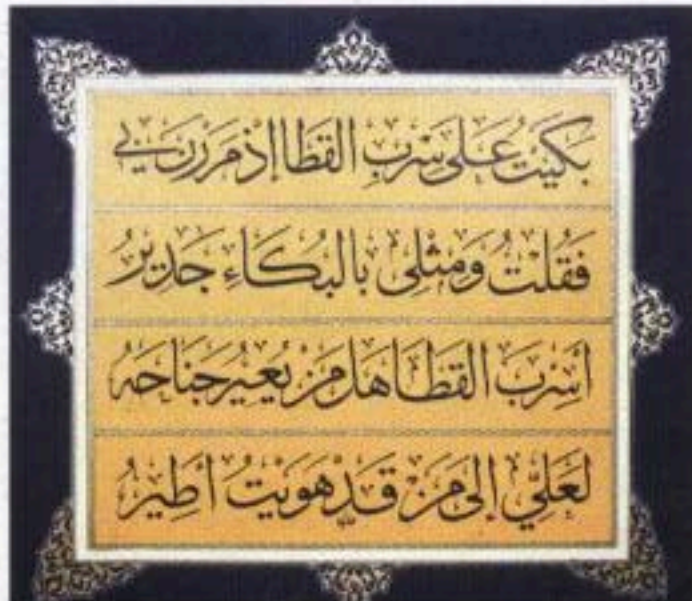 بَكَيْتُ عَلى سِرْبِ القَطا إذ مَرَرْنَ بي
فَقُلْتُ وَمِثْلِي بالبُكَاءِ جَدِيرُ
أَسِرْبَ القَطَا هَل مَنْ يُعِيرُ جَنَاحَهُ
لَعَلِّي إلى مَنْ قَدْ هَوِيْتُ أطِيرُ